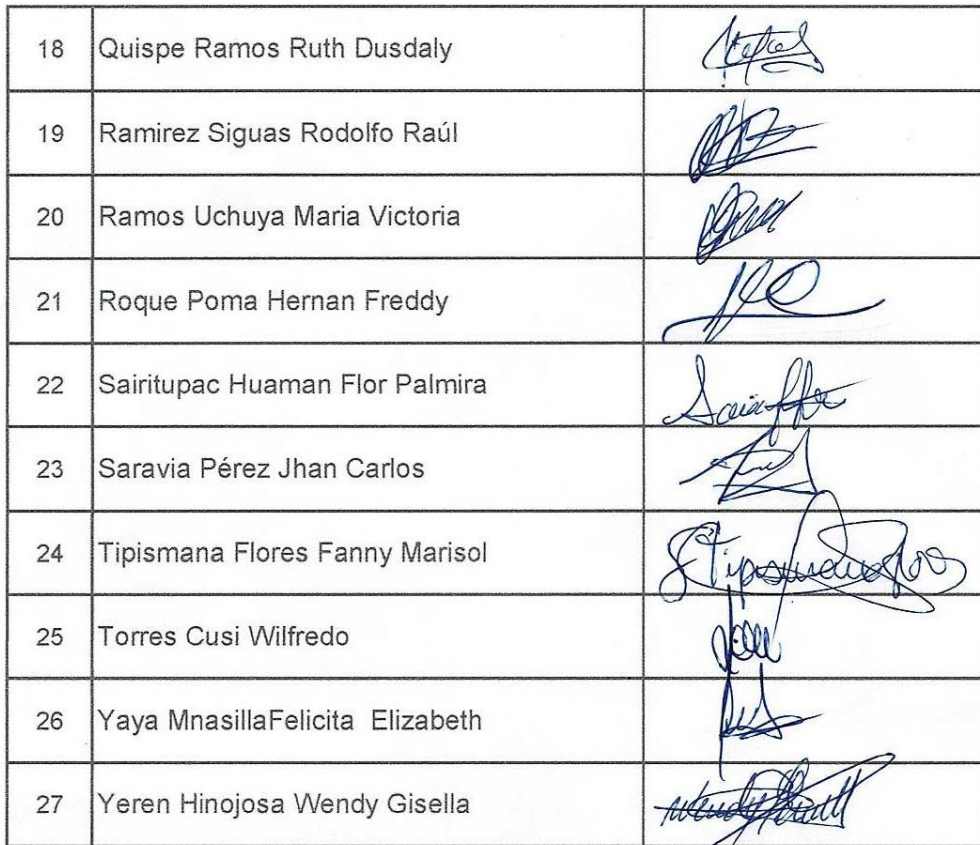 18 Quispe Ramos Ruth Dusdaly
19 Ramirez Siguas Rodolfo Raúl
20 Ramos Uchuya Maria Victoria
21 Roque Poma Hernan Freddy
22 Sairitupac Huaman Flor Palmira
23 Saravia Pérez Jhan Carlos
24 Tipismana Flores Fanny Marisol
25 Torres Cusi Wilfredo
26 Yaya MnasillaFelicita Elizabeth
27 Yeren Hinojosa Wendy Gisella